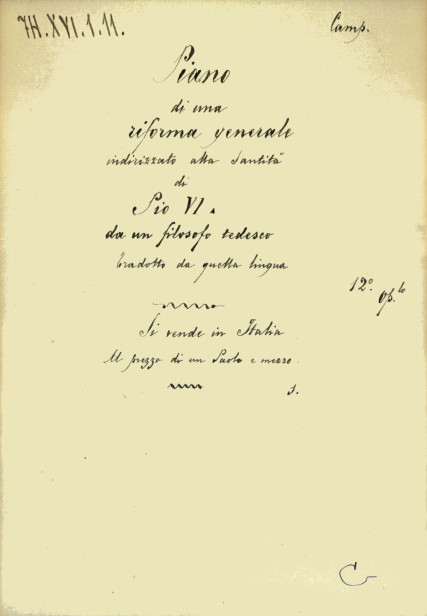 7H.XVI.1.11.
Camp.
Piano
di una
riforma generale
indirizzato alla Santità
di
Pio VI.
da un filosofo tedesco
tradotto da quella lingua
12º. op.lo
Si vende in Italia
Al prezzo di un Paolo e mezzo
s.